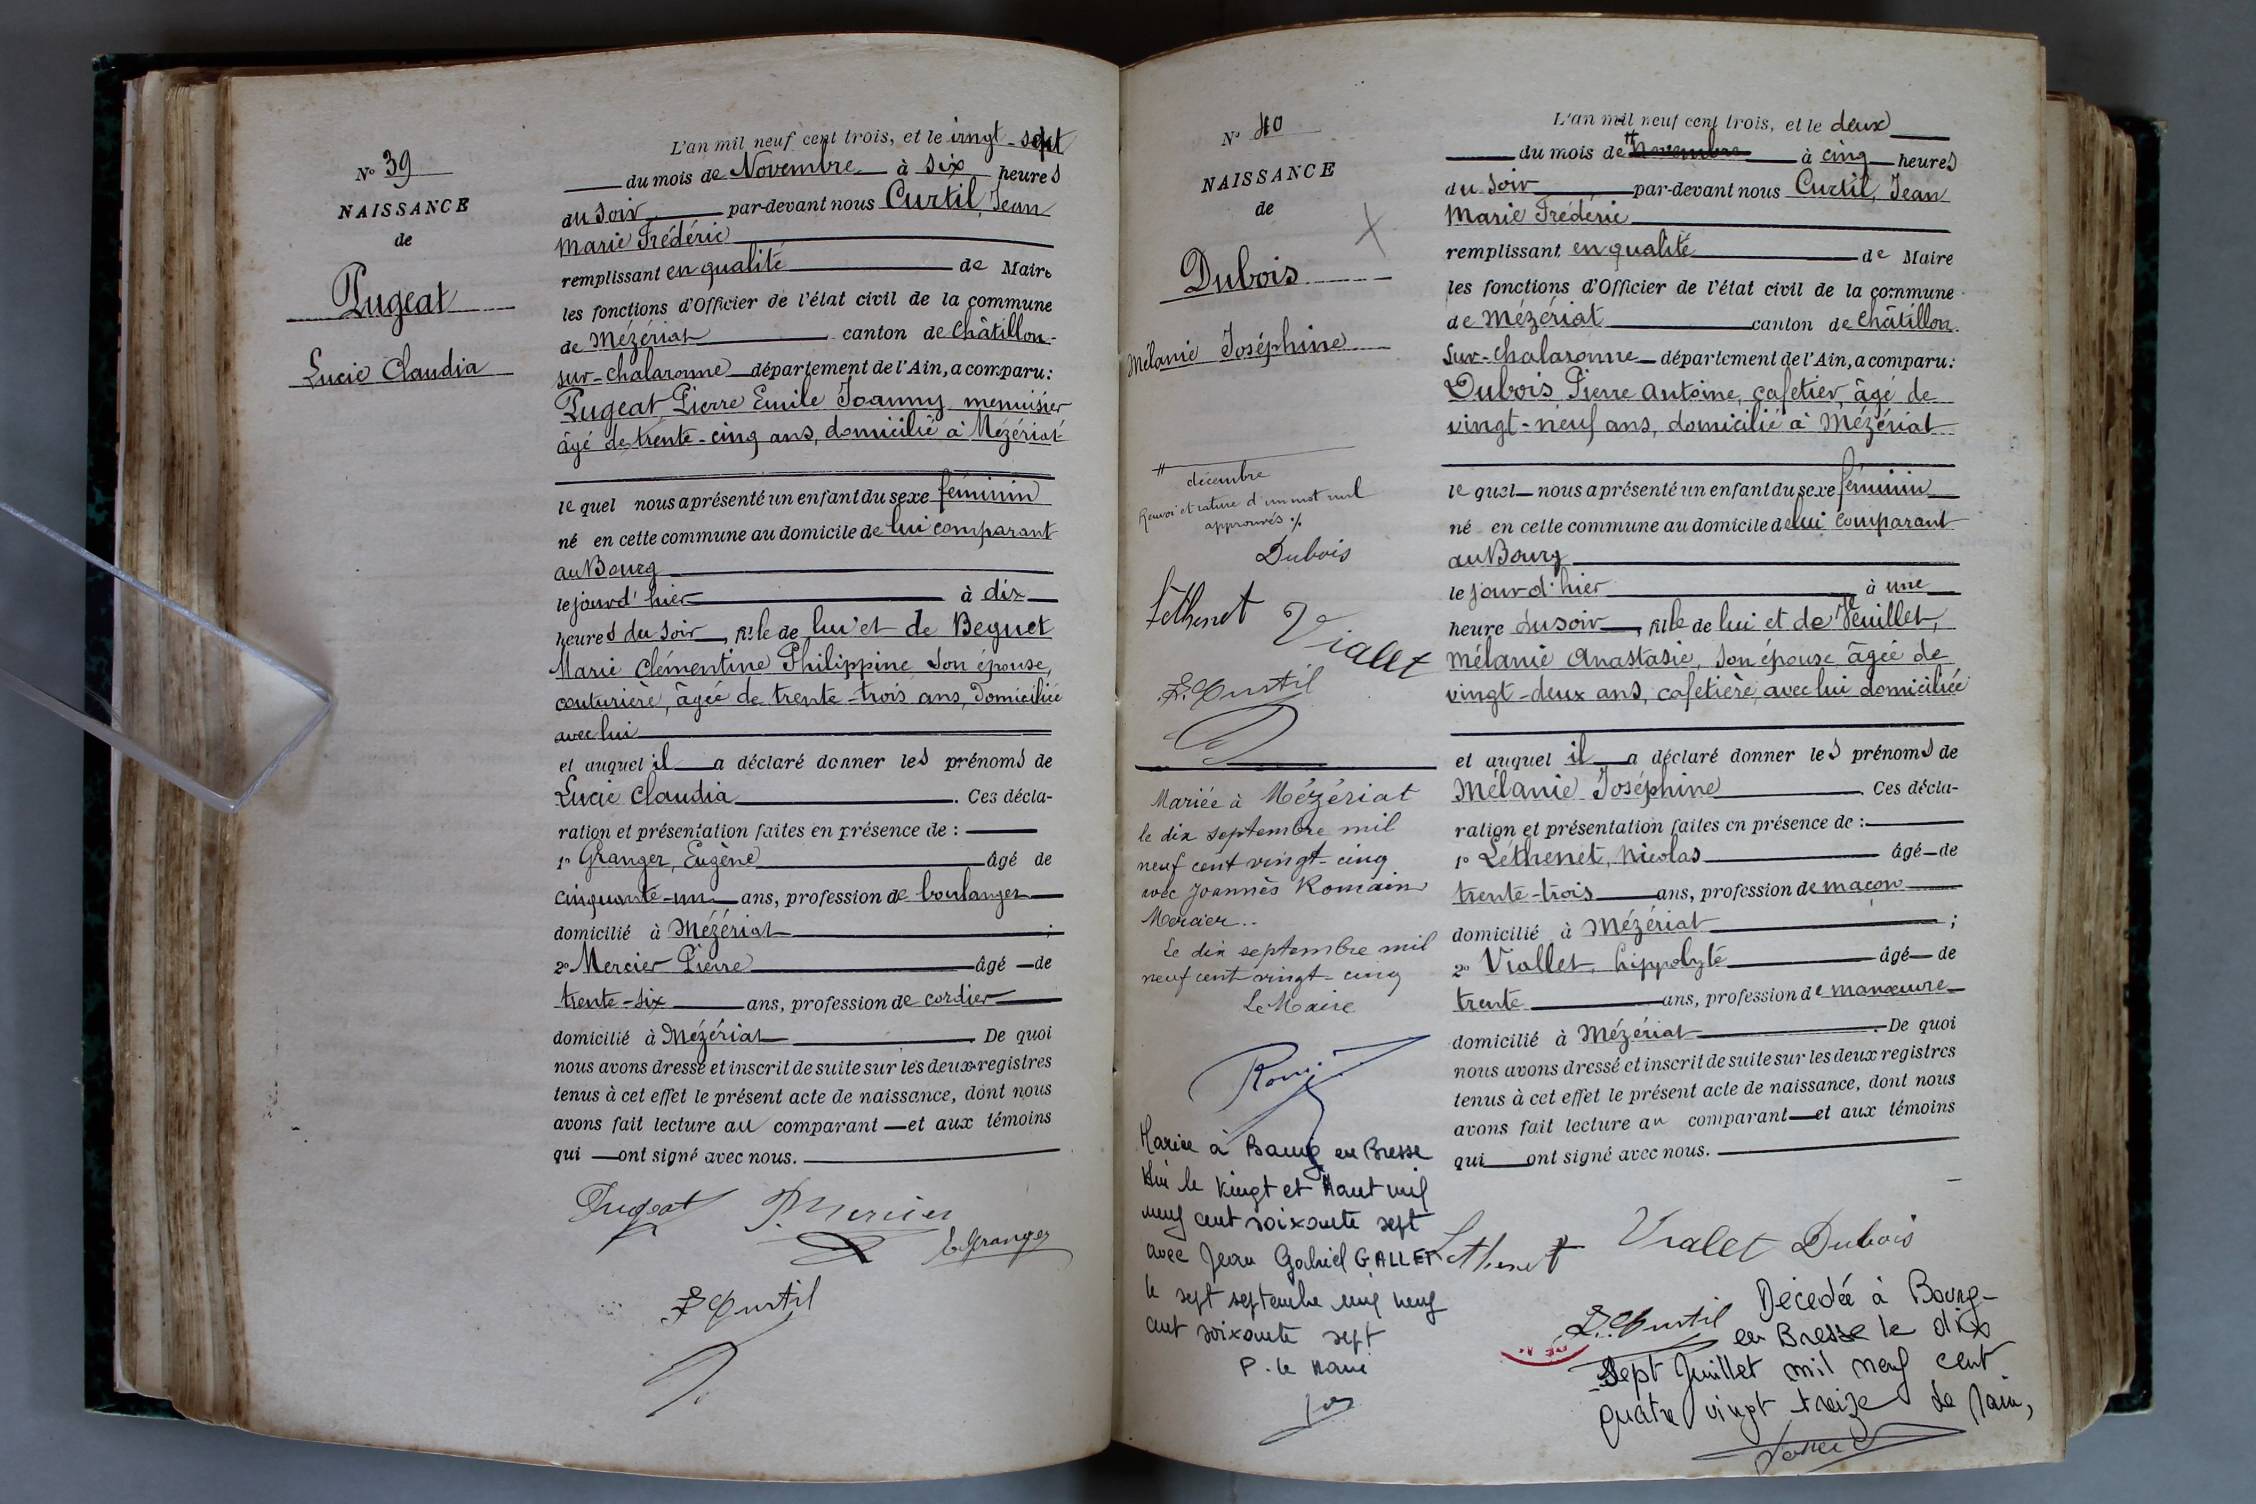 N° 39
NAISSANCE
de
Pugeat
Lucie Claudia
L'an mil neuf cent trois, et le vingt-sept
du mois de Novembre à six heures
du soir par-devant nous Curtil, Jean
Marie Frédéric
remplissant en qualité de Maire
les fonctions d'Officier de l'état civil de la commune
de Mézériat canton de Châtillon-
sur-Chalaronne département de l'Ain, a comparu :
Pugeat Pierre Emile Joanny, menuisier
âgé de trente-cinq ans, domicilié à Mézériat
lequel nous a présenté un enfant du sexe féminin
né en cette commune au domicile de lui comparant
au Bourg
le jour d'hier à dix
heures du soir, fille de lui et de Beguet
Marie Clémentine Philippine son épouse,
couturière, âgée de trente-trois ans, domiciliée
avec lui
et auquel il a déclaré donner les prénoms de
Lucie Claudia. Ces décla-
ration et présentation faites en présence de :
1° Granger, Eugène âgé de
cinquante-un ans, profession de boulanger
domicilié à Mézériat ;
2° Mercier Pierre âgé de
trente-six ans, profession de cordier
domicilié à Mézériat. De quoi
nous avons dressé et inscrit de suite sur les deux registres
tenus à cet effet le présent acte de naissance, dont nous
avons fait lecture au comparant et aux témoins
qui ont signé avec nous.
Pugeat P. Mercier
E. Granger
F. Curtil
N° 40
NAISSANCE
de
Dubois
Mélanie Joséphine
décembre
Renvoi et rature d'un mot nul
approuvés ./.
Dubois
Léthenet Viallet
F. Curtil
Mariée à Mézériat
le dix septembre mil
neuf cent vingt-cinq
avec Joannès Romain
Mercier..
Le dix septembre mil
neuf cent vingt-cinq
Le Maire
Mariée à Bourg en Bresse
Ain le Vingt et Un Août mil
neuf cent soixante sept
avec Jean Gabriel GALLET
le sept septembre mil neuf
cent soixante sept
P. le Maire
L'an mil neuf cent trois, et le deux
du mois de novembre à cinq heures
du soir par-devant nous Curtil, Jean
Marie Frédéric
remplissant en qualité de Maire
les fonctions d'Officier de l'état civil de la commune
de Mézériat canton de Châtillon-
sur-Chalaronne département de l'Ain, a comparu :
Dubois Pierre Antoine, cafetier, âgé de
vingt-neuf ans, domicilié à Mézériat
lequel nous a présenté un enfant du sexe féminin
né en cette commune au domicile de lui comparant
au Bourg
le jour d'hier à une
heure du soir, fille de lui et de Veuillet,
Mélanie Anastasie, son épouse âgée de
vingt-deux ans, cafetière, avec lui domiciliée
et auquel il a déclaré donner les prénoms de
Mélanie Joséphine. Ces décla-
ration et présentation faites en présence de :
1° Léthenet, Nicolas âgé de
trente-trois ans, profession de maçon
domicilié à Mézériat ;
2° Viallet, hippolyte âgé de
trente ans, profession de manœuvre
domicilié à Mézériat. De quoi
nous avons dressé et inscrit de suite sur les deux registres
tenus à cet effet le présent acte de naissance, dont nous
avons fait lecture au comparant et aux témoins
qui ont signé avec nous.
Lethenet Vialet Dubois
F. Curtil
Décédée à Bourg-
en Bresse le dix
Sept Juillet mil neuf cent
quatre vingt treize